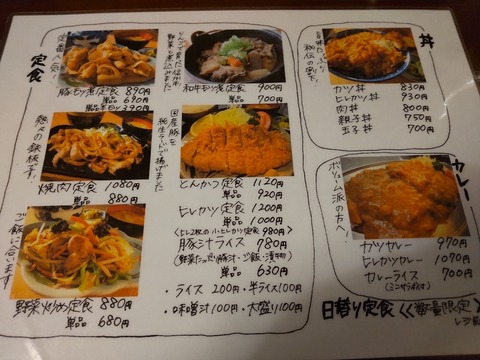 定食
定番・人気!
豚もつ煮定食 890円
単品 690円
りんごで育った信州牛
野菜と煮込みました
和牛もつ煮定食 900円
単品 700円
熱々の鉄板です!
焼肉定食 1080円
単品 880円
国産豚を
純生ラードで揚げました
とんかつ定食 1120円
単品 920円
ヒレカツ定食 1200円
単品 1000円
(ヒレ2枚の小ヒレカツ定食 980円)
豚汁ライス 780円
(野菜たっぷり豚汁・ご飯・漬物)
単品 630円
ご飯に合います
野菜炒め定食 880円
単品 680円
・ライス 200円・半ライス100円
・味噌汁100円・大盛り100円
丼
秘伝の割下!
カツ丼 830円
ヒレカツ丼 930円
肉丼 800円
親子丼 750円
玉子丼 700円
カレー
ボリューム派の方へ!
カツカレー 970円
ヒレカツカレー 1070円
カレーライス 700円
(ミニサラダ付き)
日替り定食<<数量限定>>